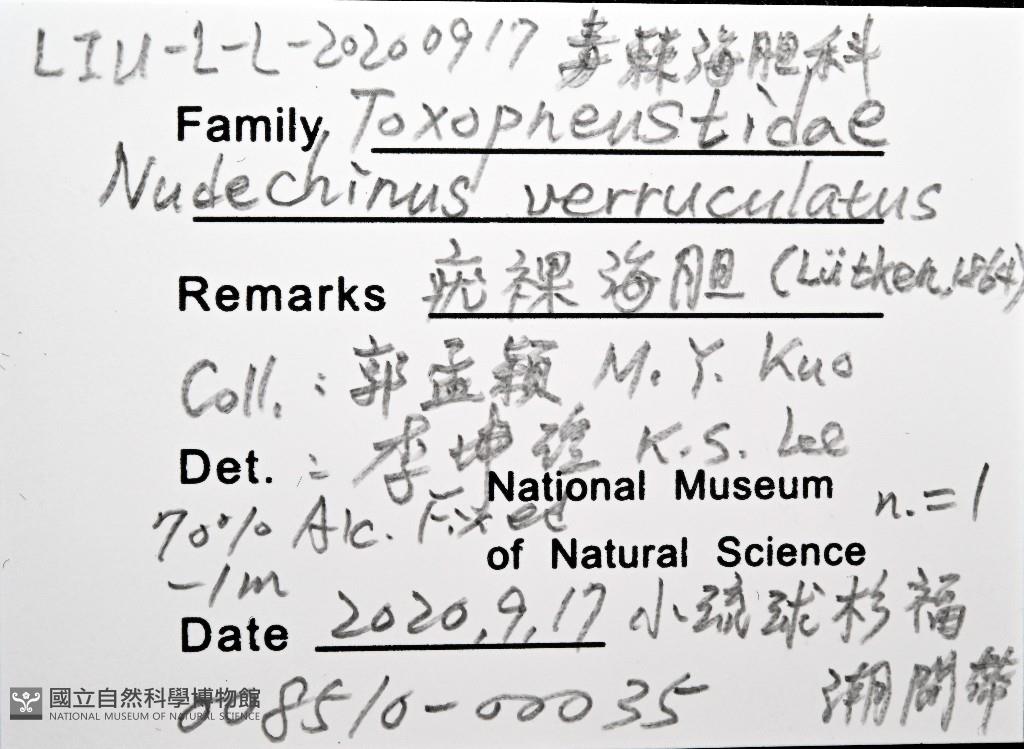 LIU-L-L-20200917 毒棘海胆科
Family Toxopneustidae
Nudechinus verruculatus
Remarks 疣裸海胆 (Lütken, 1864)
Coll. : 郭孟穎 M. Y. Kuo
Det. : 李坤瑄 K.S. Lee
National Museum n.=1
70% Alc. Fixed
of Natural Science
-1m
Date 2020.9.17 小琉球杉福
潮間帶
008510-00035
國立自然科學博物館
NATIONAL MUSEUM OF NATURAL SCIENCE